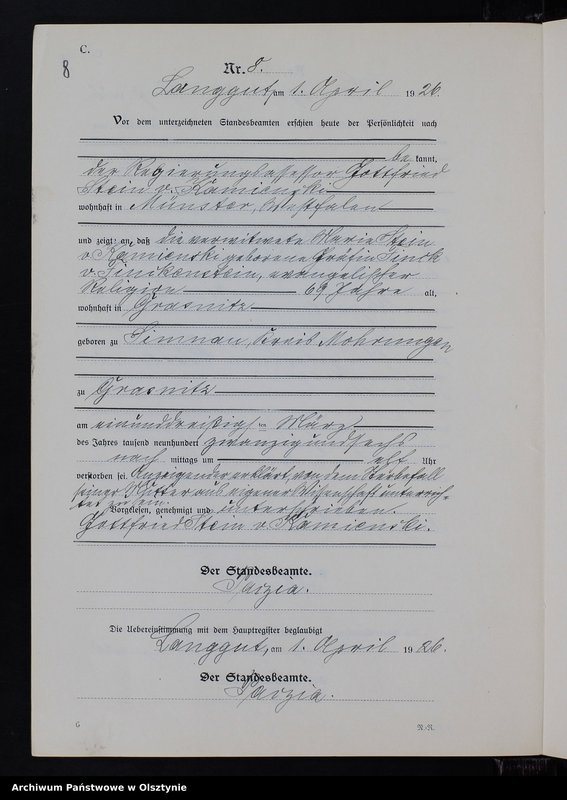 C.
8
Nr. 8.
Langgut, am 1. April 1926.
Vor dem unterzeichneten Standesbeamten erschien heute der Persönlichkeit nach
be kannt,
der Regierungsassessor Gottfried
Stein v. Kamienski
wohnhaft in Münster, Westfalen
und zeigte an, daß die verwitwete Marie Stein
v. Kamienski geborene Gräfin Finck
v. Finckenstein, evangelischer
Religion 69 Jahre alt,
wohnhaft in Grasnitz
geboren zu Simnau, Kreis Mohrungen
zu Grasnitz
am einunddreißigsten März
des Jahres tausend neunhundert zwanzigundsechs
nach mittags um elf Uhr
verstorben sei. Anzeigender erklärt, von dem Sterbefall
seiner Mutter aus eigener Wissenschaft unterrich-
tet zu sein.
Vorgelesen, genehmigt und unterschrieben.
Gottfried Stein v. Kamienski.
Der Standesbeamte.
Die Uebereinstimmung mit dem Hauptregister beglaubigt
Langgut, am 1. April 1926.
Der Standesbeamte.
6
N.-N.
Archiwum Państwowe w Olsztynie